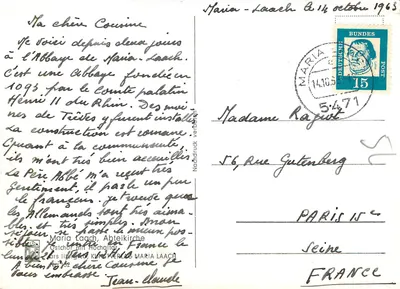 Maria-Laach le 14 octobre 1963
Ma chère Cousine
Me voici depuis deux jours
à l'Abbaye de Maria-Laach.
C'est une Abbaye fondée en
1093 par le comte palatin
Henri II du Rhin. Des moi-
nes de Trèves y furent installés
La construction est romane
Quant à la communauté,
ils m'ont très bien accueilli.
Le Père Abbé m'a reçu très
gentiment, il parle un peu
le français. Je trouve que
les Allemands sont très aima-
bles et très simples. Mon
séjour se passe le mieux pos-
sible. Je rentre en France le
lundi 21
bientôt chère Cousine
vous embrasse
Jean-Claude
Maria Laach, Abteikirche
MARIA LAACH
DEUTSCHE BUNDESPOST
15
MARIA LAACH
14.10.63
5471
Madame Ragot
56, Rue Gutenberg
PARIS 15e
SEINE
FRANCE